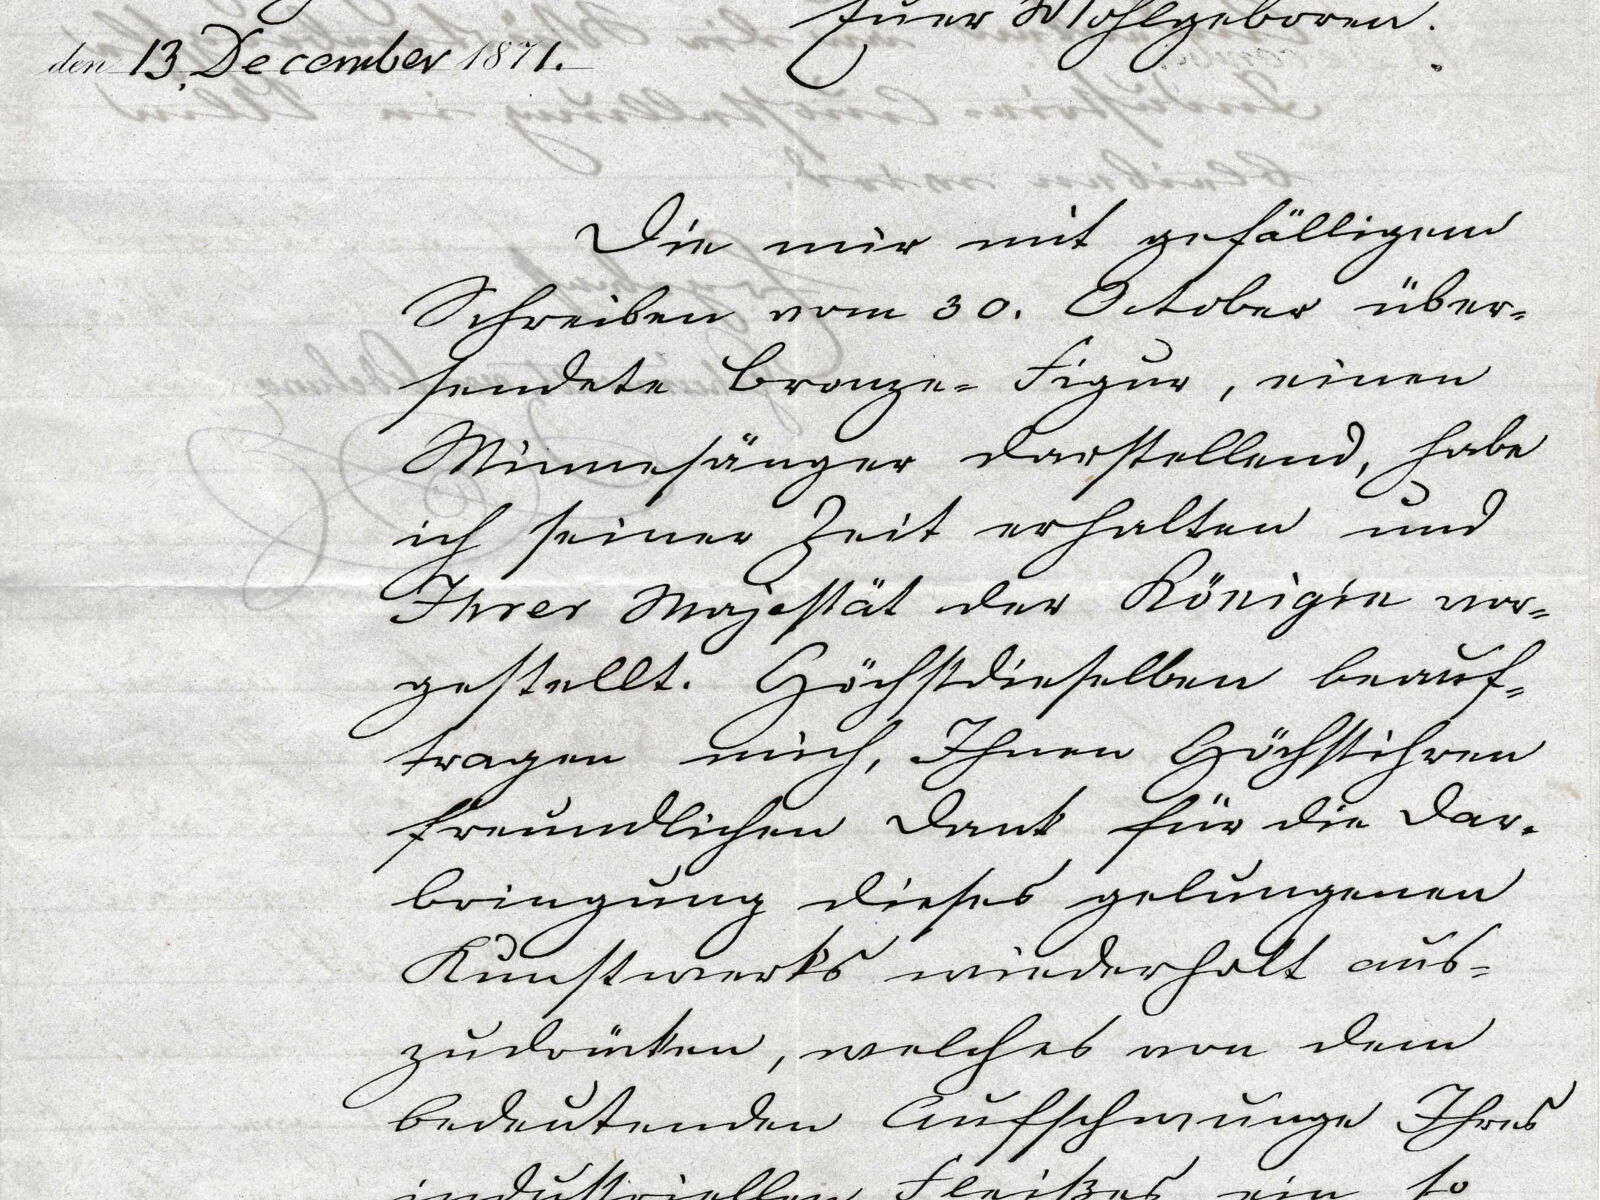 Euer Wohlgeboren.
den 13. December 1871.
Die mir mit gefälligem
Schreiben vom 30. October über=
sendete Bronze=Figur, einen
Minnesänger darstellend, habe
ich seiner Zeit erhalten und
Ihrer Majestät der Königin vor=
gestellt. Höchstdieselben beauf=
tragen mich, Ihnen Höchstihren
freundlichen Dank für die Dar=
bringung dieses gelungenen
Kunstwerks wiederholt aus=
zudrücken, welches von dem
bedeutenden Aufschwunge Ihres
industriellen Fleißes ein so